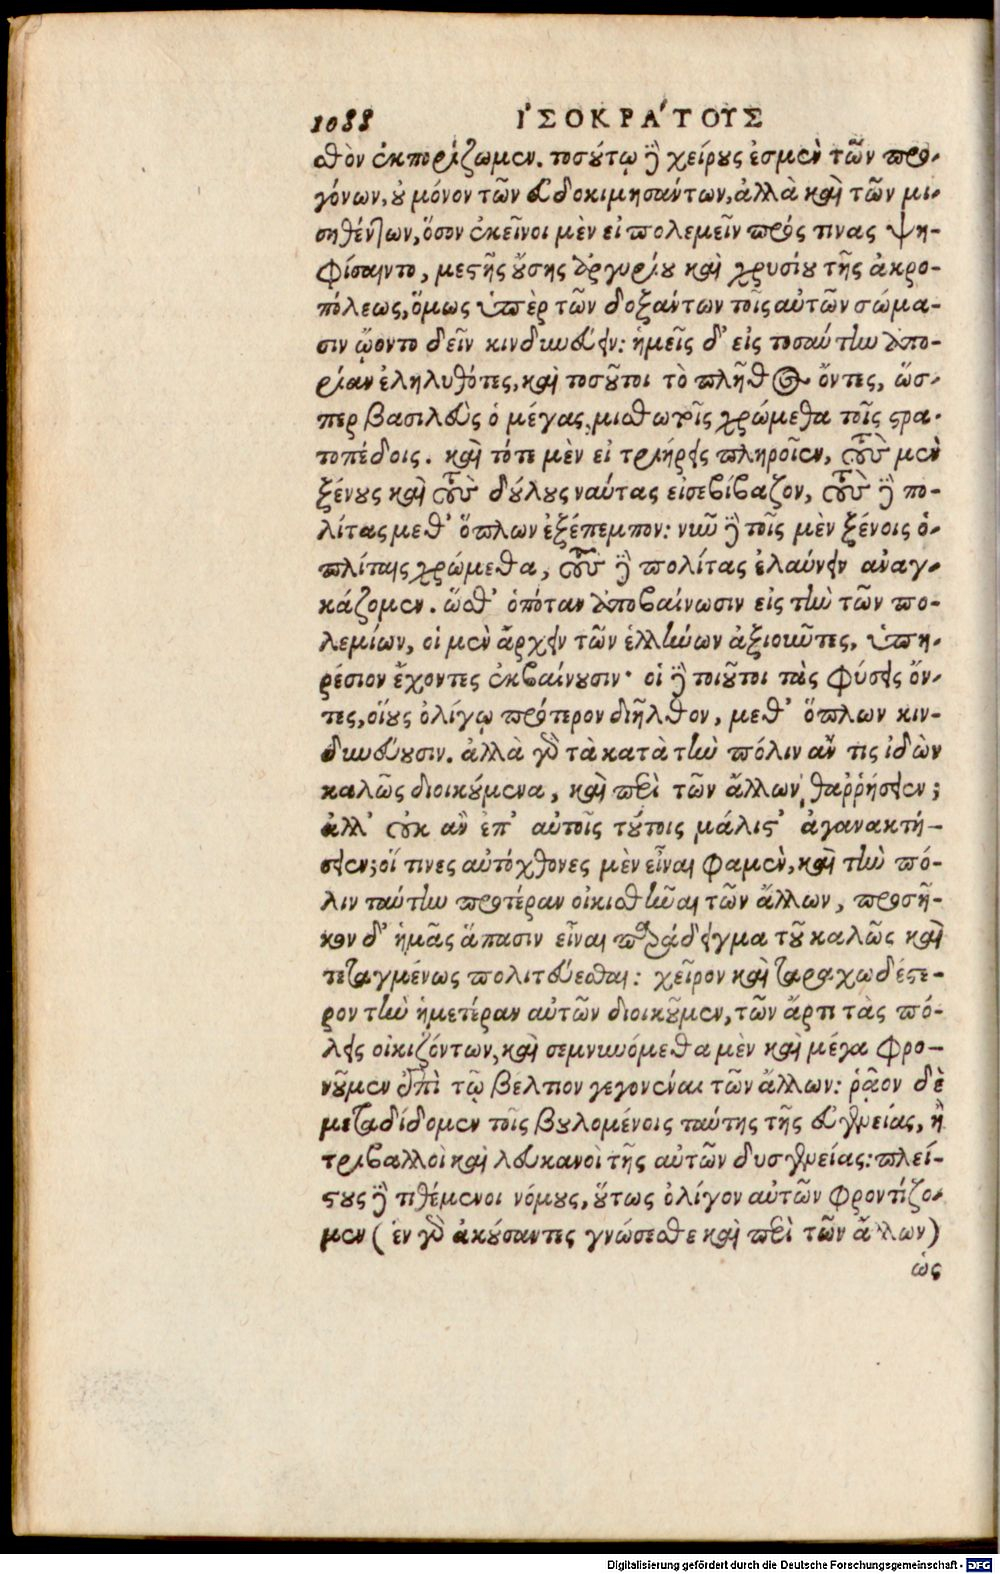 1088 ἸΣΟΚΡΑ´ΤΟΥΣ
σθὸν ἐκπορίζωμεν. τοσούτῳ δὲ χείρους ἐσμὲν τῶν προ-
γόνων, οὐ μόνον τῶν εὐδοκιμησάντων, ἀλλὰ καὶ τῶν μι-
σηθέντων, ὅσον ἐκεῖνοι μὲν εἰ πολεμεῖν πρός τινας ψη-
φίσαιντο, μεστῆς οὔσης ἀργυρίου καὶ χρυσίου τῆς ἀκρο-
πόλεως, ὅμως ὑπὲρ τῶν δοξάντων τοῖς αὑτῶν σώμα-
σιν ᾤοντο δεῖν κινδυνεύειν: ἡμεῖς δ' εἰς τοσαύτην ἀπο-
ρίαν ἐληλυθότες, καὶ τοσοῦτοι τὸ πλῆθος ὄντες, ὥσ-
περ βασιλεὺς ὁ μέγας, μισθωτοῖς χρώμεθα τοῖς στρα-
τοπέδοις. καὶ τότε μὲν εἰ τριήρεις πληροῖεν, τοὺς μὲν
ξένους καὶ τοὺς δούλους ναύτας εἰσεβίβαζον, τοὺς δὲ πο-
λίτας μεθ' ὅπλων ἐξέπεμπον: νῦν δὲ τοῖς μὲν ξένοις ὁ-
πλίταις χρώμεθα, τοὺς δὲ πολίτας ἐλαύνειν ἀναγ-
κάζομεν. ὥσθ' ὁπόταν ἀποβαίνωσιν εἰς τὴν τῶν πο-
λεμίων, οἱ μὲν ἄρχειν τῶν ἑλλήνων ἀξιοῦντες, ὑπη-
ρέσιον ἔχοντες ἐκβαίνουσιν· οἱ δὲ τοιοῦτοι τὰς φύσεις ὄν-
τες, οἵους ὀλίγῳ πρότερον διῆλθον, μεθ' ὅπλων κιν-
δυνεύουσιν. ἀλλὰ γὰρ τὰ κατὰ τὴν πόλιν ἄν τις ἰδὼν
καλῶς διοικούμενα, καὶ περὶ τῶν ἄλλων, θαῤῥήσειεν;
ἀλλ' οὐκ ἂν ἐπ' αὐτοῖς τούτοις μάλιστ' ἀγανακτή-
σειεν; οἵ τινες αὐτόχθονες μὲν εἶναι φαμὲν, καὶ τὴν πό-
λιν ταύτην προτέραν οἰκισθῆναι τῶν ἄλλων, προσῆ-
κον δ' ἡμᾶς ἅπασιν εἶναι παράδειγμα τοῦ καλῶς καὶ
τεταγμένως πολιτεύεσθαι: χεῖρον καὶ ταραχωδέστε-
ρον τὴν ἡμετέραν αὐτῶν διοικοῦμεν, τῶν ἄρτι τὰς πό-
λεις οἰκιζόντων, καὶ σεμνυνόμεθα μὲν καὶ μέγα φρο-
νοῦμεν ἐπὶ τῷ βέλτιον γεγονέναι τῶν ἄλλων: ῥᾷον δὲ
μεταδίδομεν τοῖς βουλομένοις ταύτης τῆς εὐγενείας, ἢ
τριβαλλοὶ καὶ λευκανοὶ τῆς αὑτῶν δυσγενείας: πλεί-
στους δὲ τιθέμενοι νόμους, οὕτως ὀλίγον αὐτῶν φροντίζο-
μεν (ἓν γὰρ ἀκούσαντες γνώσεσθε καὶ περὶ τῶν ἄλλων)
ὡς
Digitalisierung gefördert durch die Deutsche Forschungsgemeinschaft - DFG